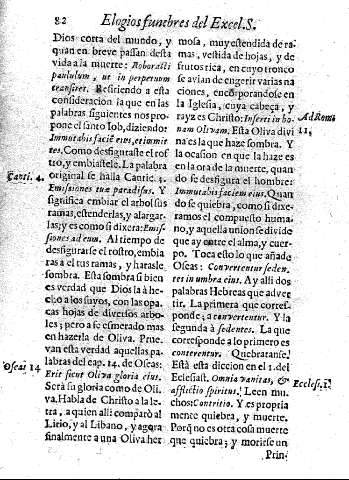 82 Elogios funebres del Excel.S.
Dios corta del mundo, y
quan en breve passan desta
vida a la muerte: Roboracti
paululum, ut in perpetuum
transiret. Refiriendo a esta
consideracion la que en las
palabras siguientes nos pro-
pone el santo Iob, diziendo:
Immutabis faciē eius, et immit-
tes. Como desfiguraste el ros-
tro, y embiastele. La palabra
Canti. 4. original se halla Cantic. 4.
Emissiones tuæ paradisus. Y
significa embiar el arbol sus
ramas, estenderlas, y alargar-
las; y es como si dixera: Emis-
siones ad eum. Al tiempo de
desfigurarse el rostro, embia-
ras a el tus ramas, y harasle
sombra. Esta sombra si bien
es verdad que Dios la à he-
cho a los suyos, con las opa-
cas hojas de diversos arbo-
les; pero a se esmerado mas
en hazerla de Oliva. Prue-
van esta verdad aquellas pa-
Oseas 14 labras del cap. 14. de Oseas:
Erit sicut Oliva gloria eius.
Será su gloria como de Oli-
va. Habla de Christo a la le-
tra, a quien alli comparò al
Lirio, y al Libano, y agora
finalmente a una Oliva her
mosa, muy estendida de ra-
mas, vestida de hojas, y de
frutos rica, en cuyo tronco
se avian de engerir varias na
ciones, encorporandose en
la Iglesia, cuya cabeça, y
rayz es Christo: Inseri in bo- Ad Rom.
nam Olivam. Esta Oliva divi 11.
na es la que haze sombra. Y
la ocasion en que la haze es
en la ora de la muerte, quan
do se desfigura el hombre:
Immutabis faciem eius. Quan
do se quiebra, como si dixe-
ramos el compuesto huma-
no, y aquella union se divide
que ay entre el alma, y cuer-
po. Toca esto lo que añade
Oseas: Convertentur seden-
tes in umbra eius. Ay alli dos
palabras Hebreas que adver
tir. La primera que corres-
ponde; a convertentur. Y la
segunda à sedentes. La que
corresponde a lo primero es
conterentur. Quebrataranse.
Està esta diccion en el 1. del
Eclesiast. Omnia vanitas, & Eccles. 1.
afflictio spiritus. Leen mu-
chos: Contritio. Y es propria
mente quiebra, y muerte.
Porq̃ no es otra cosa muerte
que quiebra; y morirse un
Prin-